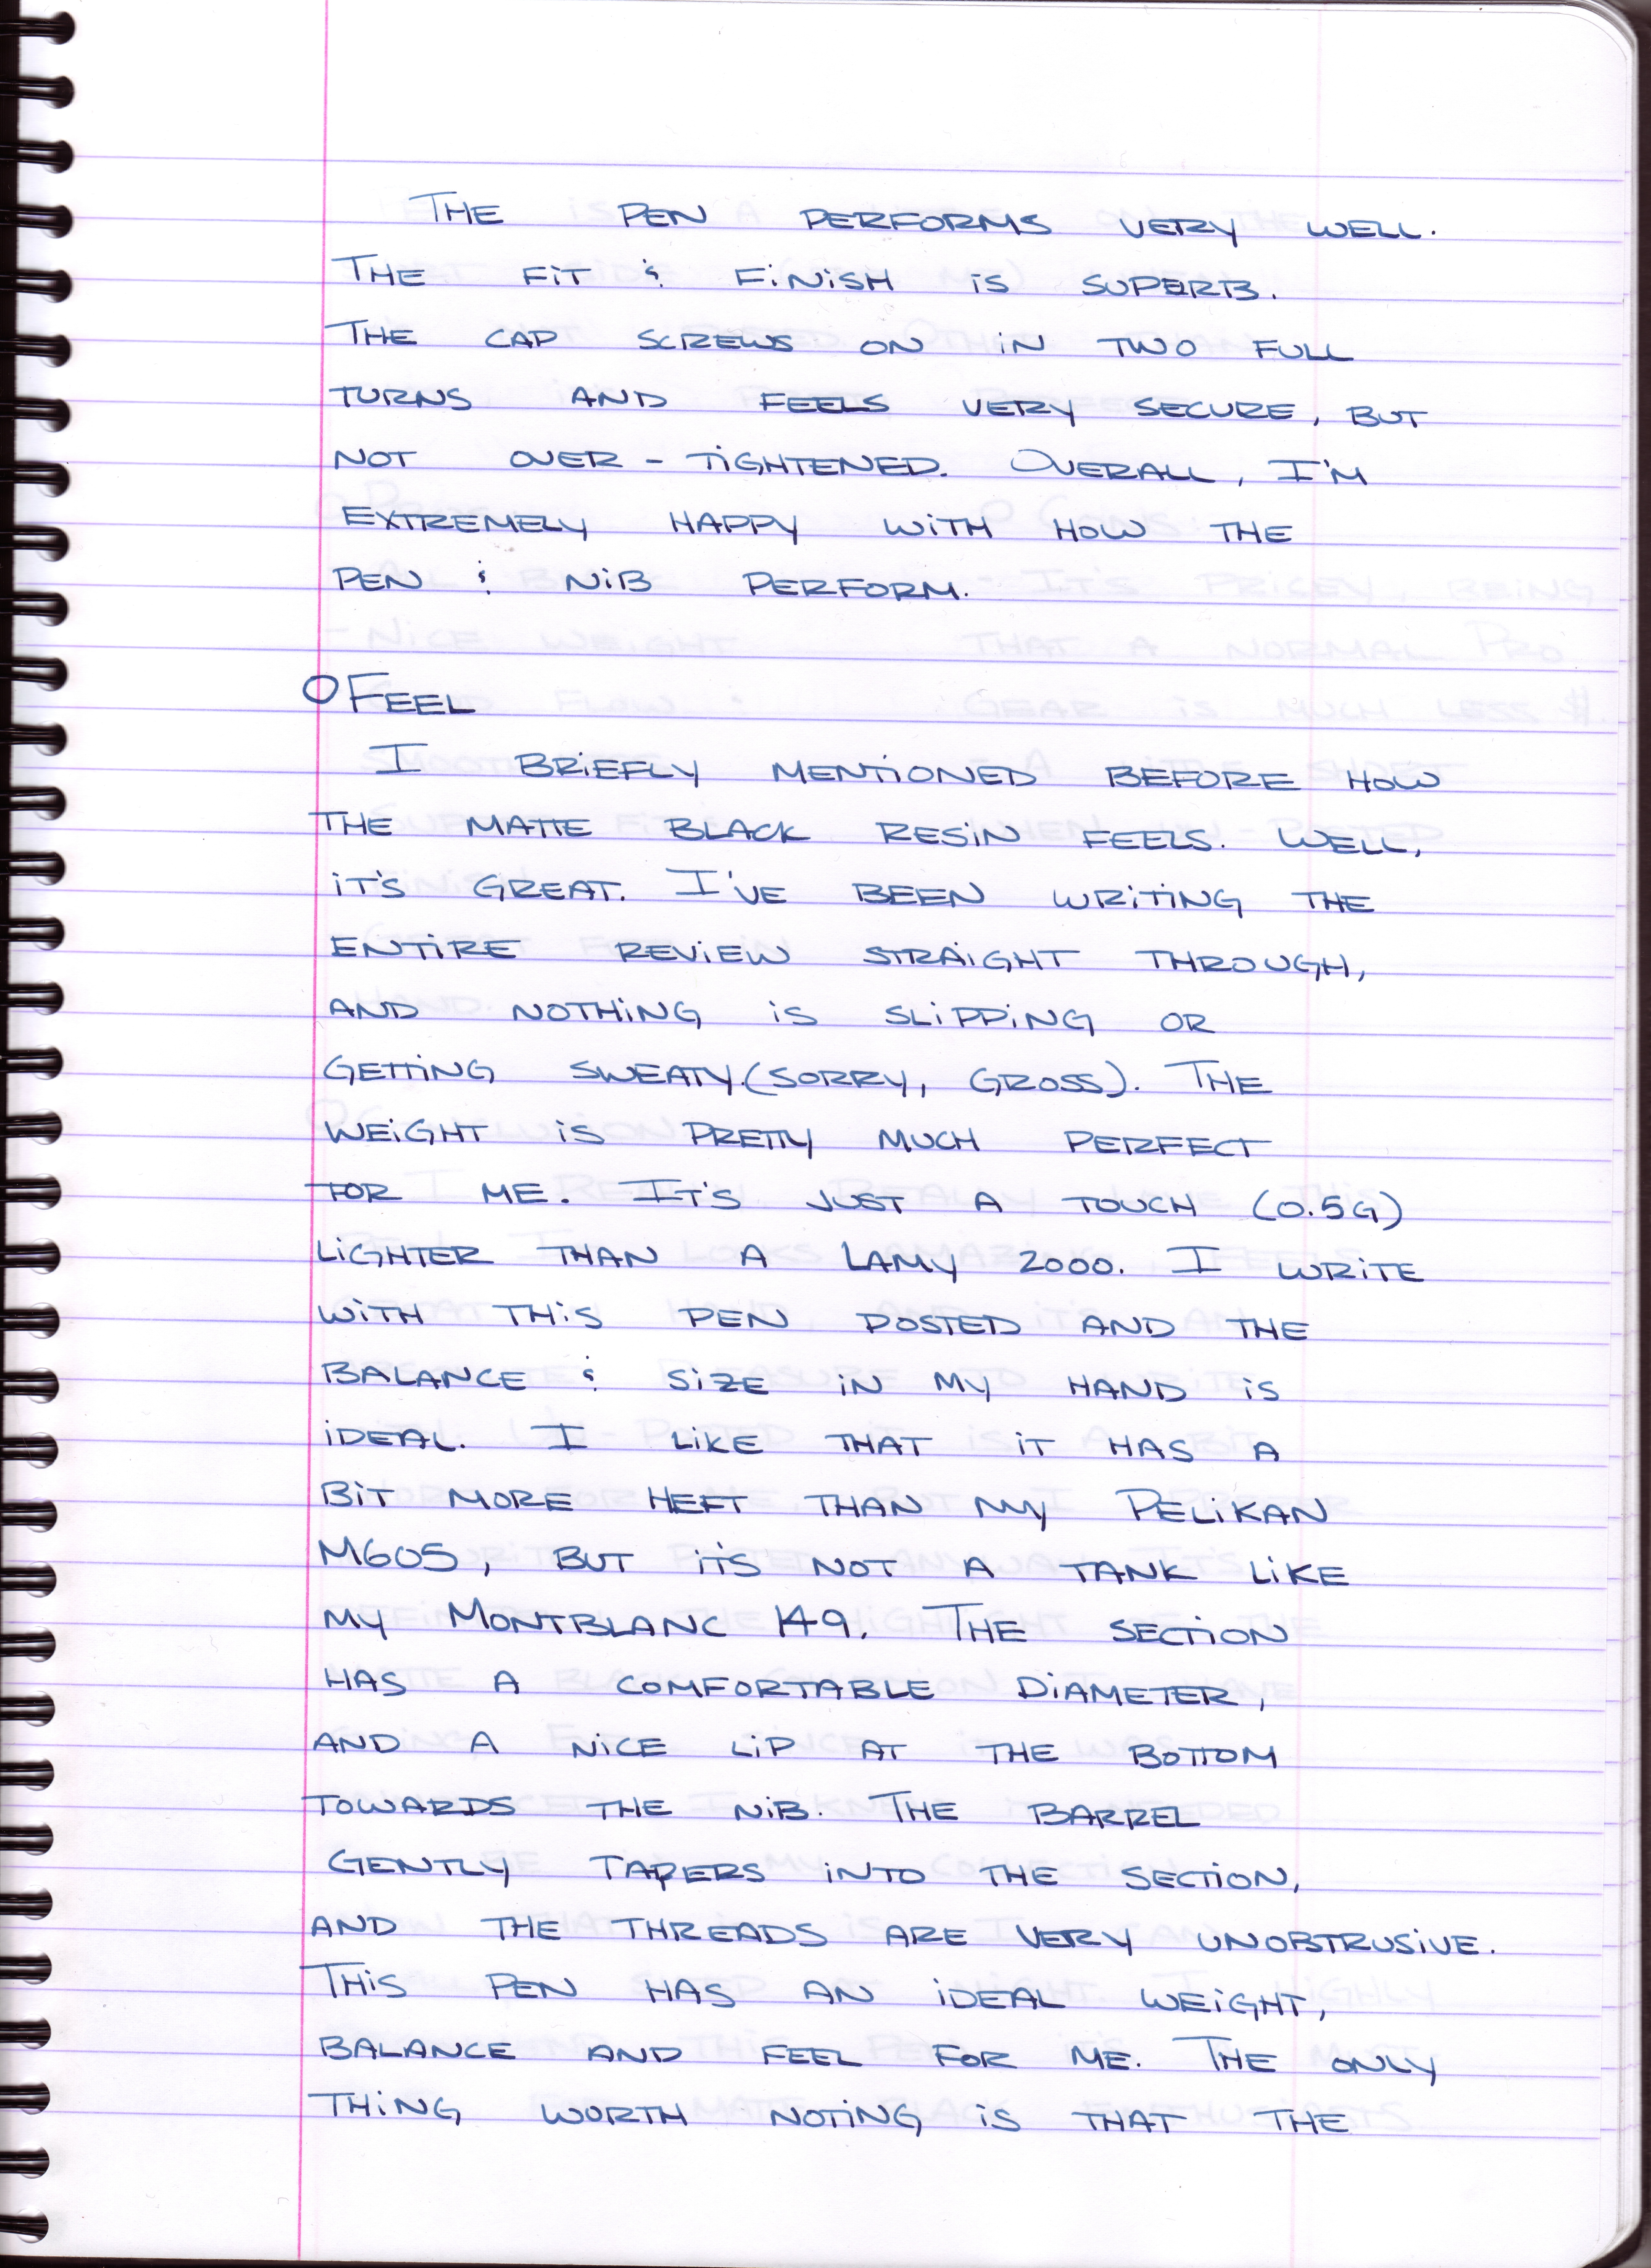 THE PEN PERFORMS VERY WELL.
THE FiT & FiNiSH iS SUPERB.
THE CAP SCREWS ON iN TWO FULL
TURNS AND FEELS VERY SECURE, BUT
NOT OVER-TiGHTENED. OVERALL, I'M
EXTREMELY HAPPY WiTH HOW THE
PEN & NiB PERFORM.
O FEEL
I BRiEFLY MENTiONED BEFORE HOW
THE MATTE BLACK RESiN FEELS. WELL,
iT'S GREAT. I'VE BEEN WRiTiNG THE
ENTiRE REViEW STRAiGHT THROUGH,
AND NOTHiNG iS SLiPPiNG OR
GETTiNG SWEATY.(SORRY, GROSS). THE
WEiGHT iS PRETTY MUCH PERFECT
FOR ME. IT'S JUST A TOUCH (0.5G)
LiGHTER THAN A LAMY 2000. I WRiTE
WiTH THiS PEN POSTED AND THE
BALANCE & SiZE iN MY HAND iS
iDEAL. I LiKE THAT iT HAS A
BiT MORE HEFT THAN MY PELiKAN
M605, BUT iT'S NOT A TANK LiKE
MY MONTBLANC 149. THE SECTiON
HAS A COMFORTABLE DiAMETER,
AND A NiCE LiP AT THE BOTTOM
TOWARDS THE NiB. THE BARREL
GENTLY TAPERS iNTO THE SECTiON,
AND THE THREADS ARE VERY UNOBTRUSiVE.
THiS PEN HAS AN iDEAL WEiGHT,
BALANCE AND FEEL FOR ME. THE ONLY
THiNG WORTH NOTiNG iS THAT THE